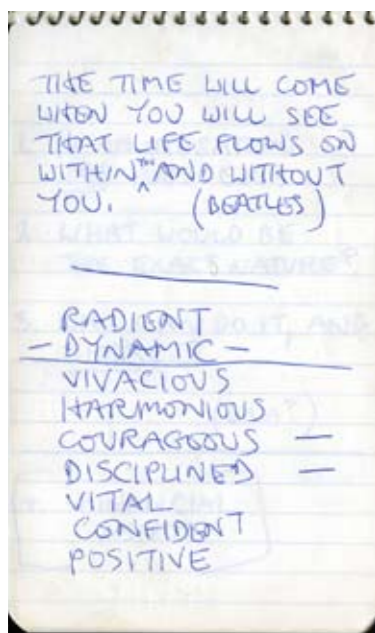 THE TIME WILL COME
WHEN YOU WILL SEE
THAT LIFE FLOWS ON
WITHIN AND WITHOUT
YOU. (BEATLES)
2 WHAT WOULD BE
EXACT NATURE?
RADIENT
- DYNAMIC -
VIVACIOUS
HARMONIOUS
COURAGEOUS —
DISCIPLINED —
VITAL
CONFIDENT
POSITIVE